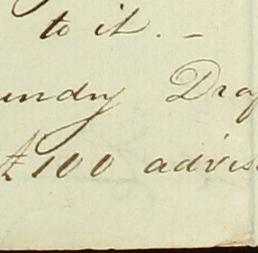 to it. –
undry Draf
£100 advis